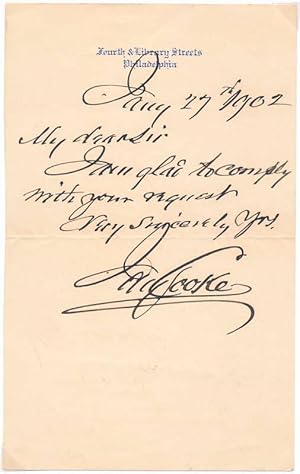 Fourth & Library Streets
Philadelphia
Jany 27th 1902
My dear Sir
I am glad to comply
with your request
Very Sincerely Yrs.
Jay Cooke